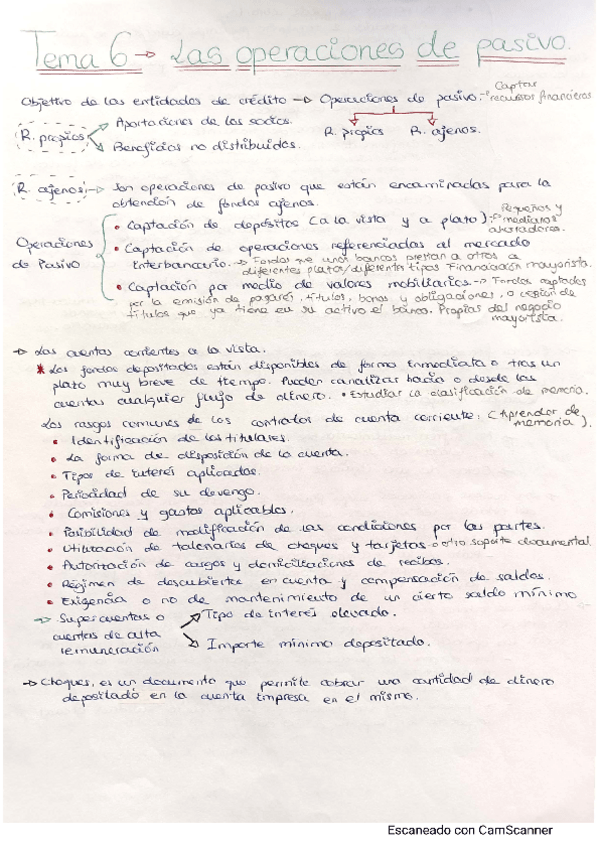 Tema 6 → Las operaciones de pasivo.
Objetivo de las entidades de crédito → Operaciones de pasivo: Captar recursos financieros
R. propios
Aportaciones de los socios.
Beneficios no distribuidos.
R. propios R. ajenos.
R. ajenos: → Son operaciones de pasivo que están encaminadas para la
obtención de fondos ajenos.
Operaciones de Pasivo
• Captación de depósitos (a la vista y a plazo): Pequeños y medianos ahorradores.
• Captación de operaciones referenciadas al mercado
interbancario. → Fondos que unos bancos prestan a otros a
diferentes plazos/diferentes tipos. Financiación mayorista.
• Captación por medio de valores mobiliarios. → Fondos captados
por la emisión de pagarés, títulos, bonos y obligaciones, o cesión de
títulos que ya tiene en su activo el banco. Propias del negocio
mayorista.
→ Las cuentas corrientes a la vista.
* Los fondos depositados están disponibles de forma inmediata o tras un
plazo muy breve de tiempo. Pueden canalizar hacia o desde las
cuentas cualquier flujo de dinero. • Estudiar la clasificación de memoria.
Los rasgos comunes de los contratos de cuenta corriente: (Aprender de memoria).
• Identificación de los titulares.
• La forma de disposición de la cuenta.
• Tipos de interés aplicados.
• Periocidad de su devengo.
• Comisiones y gastos aplicables.
• Posibilidad de modificación de las condiciones por las partes.
• Utilización de talonarios de cheques y tarjetas o otro soporte documental.
• Autorización de cargos y domiciliaciones de recibos.
• Régimen de descubiertos en cuenta y compensación de saldos.
• Exigencia o no de mantenimiento de un cierto saldo mínimo
→ Supercuentas o
cuentas de alta
remuneración
Tipo de interés elevado.
Importe mínimo depositado.
→ Cheques, es un documento que permite cobrar una cantidad de dinero
depositado en la cuenta impresa en el mismo.
Escaneado con CamScanner